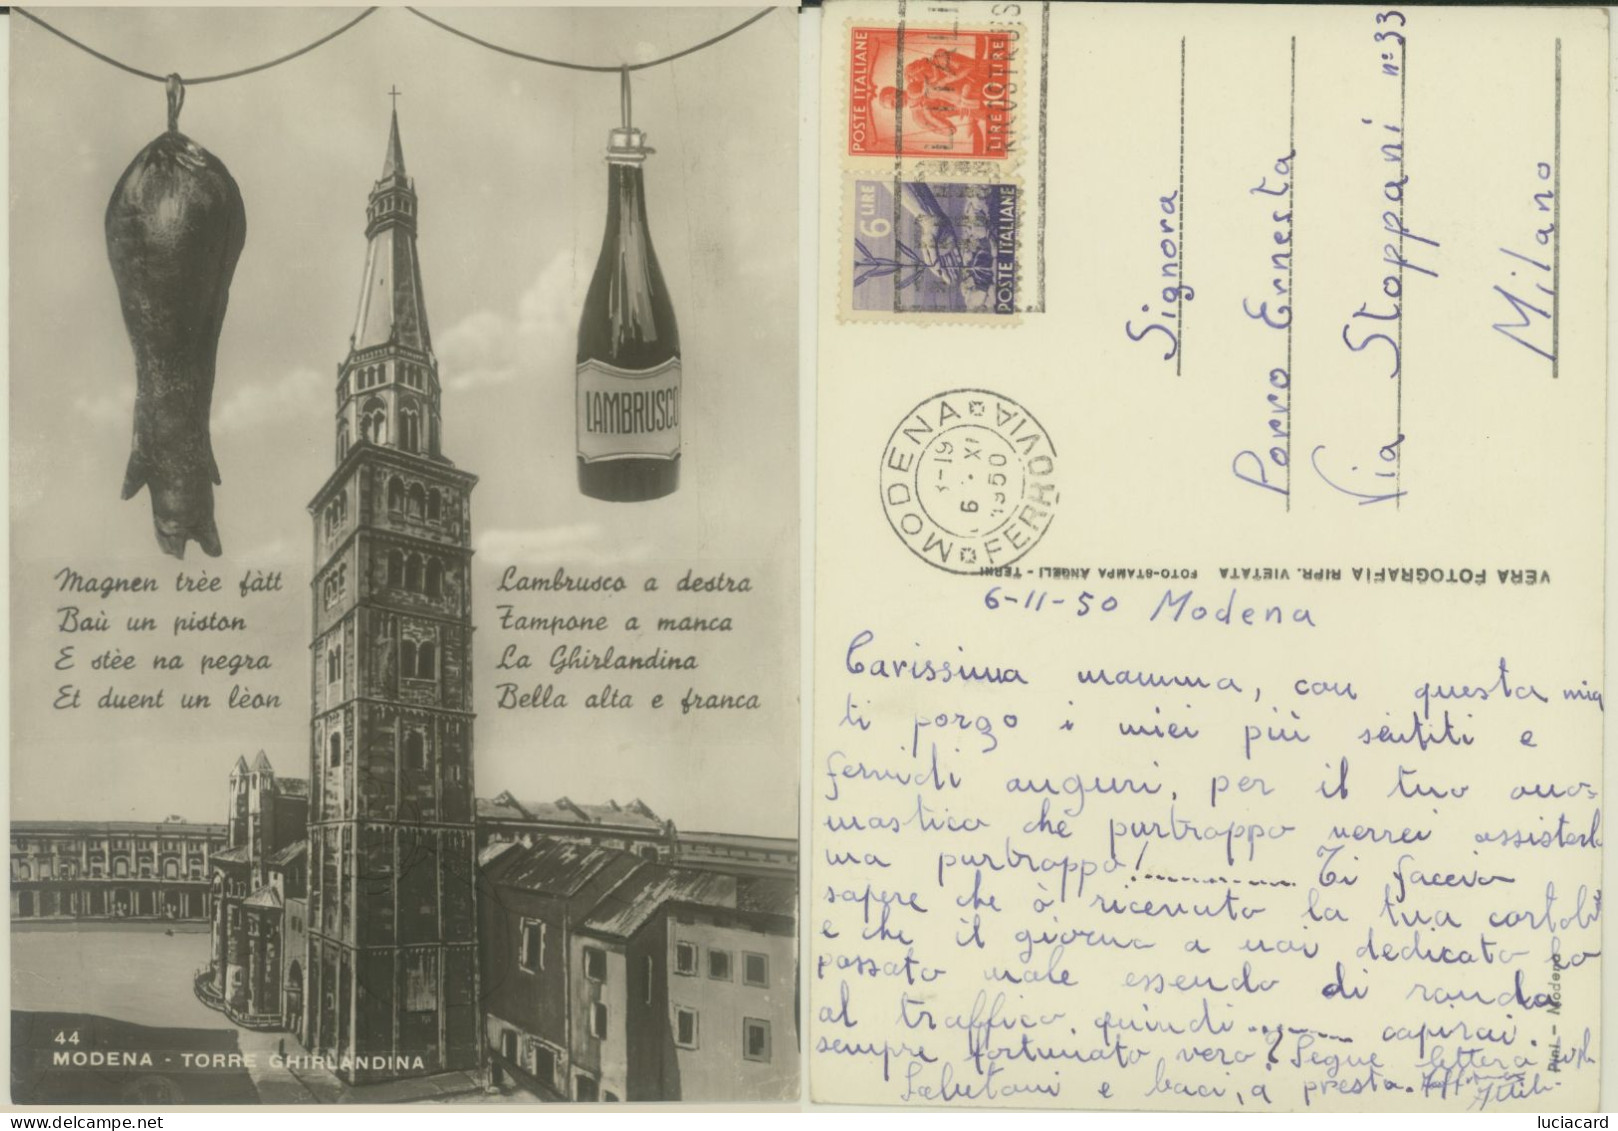 LAMBRUSCO
Magnen trèe fàtt
Baù un piston
E stèe na pegra
Et duent un lèon
Lambrusco a destra
Zampone a manca
La Ghirlandina
Bella alta e franca
44
MODENA - TORRE GHIRLANDINA
POSTE ITALIANE
LIRE 10 LIRE
6 LIRE
POSTE ITALIANE
MODENA FERROVIA
-19
6 . XI
1950
Signora
Porro Ernesta
Via Stoppani n° 33
Milano
VERA FOTOGRAFIA RIPR. VIETATA FOTO-STAMPA ANGELI - TERNI
6-11-50 Modena
Carissima mamma, con questa mia
ti porgo i miei più sentiti e
fervidi auguri, per il tuo ono=
mastico che purtroppo verrei
ma purtroppo! Ti faccio
sapere che ò ricevuto la tua
e che il giorno a voi dedicato lo
passato male essendo di ronda
al traffico, quindi capirai.
sempre fortunato vero? Segue lettera
Salutoni e baci, a presto.
Pini - Modena
luciacard